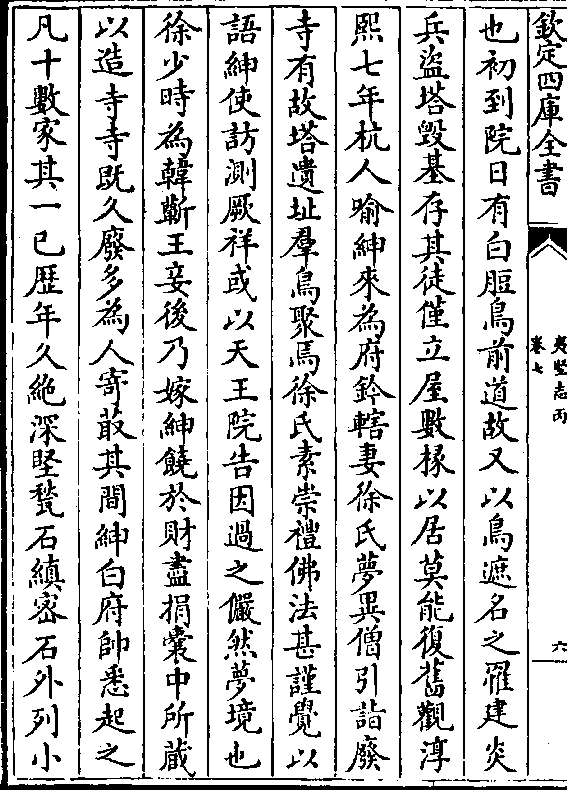 欽定四庫全書
夷堅志丙
卷七
六
也初到院日有白脰鳥前道故又以鳥遮名之罹建炎
兵盜塔毀基存其徒僅立屋數椽以居莫能復舊觀淳
熙七年杭人喻紳來為府鈐轄妻徐氏夢異僧引詣廢
寺有故塔遺址羣鳥聚焉徐氏素崇禮佛法甚謹覺以
語紳使訪測厥祥或以天王院告因過之儼然夢境也
徐少時為韓蘄王妾後乃嫁紳饒於財盡捐橐中所蔵
以造寺寺既久廢多為人寄菆其間紳白府帥悉起之
凡十數家其一已歷年久絶深堅甃石縝密石外列小